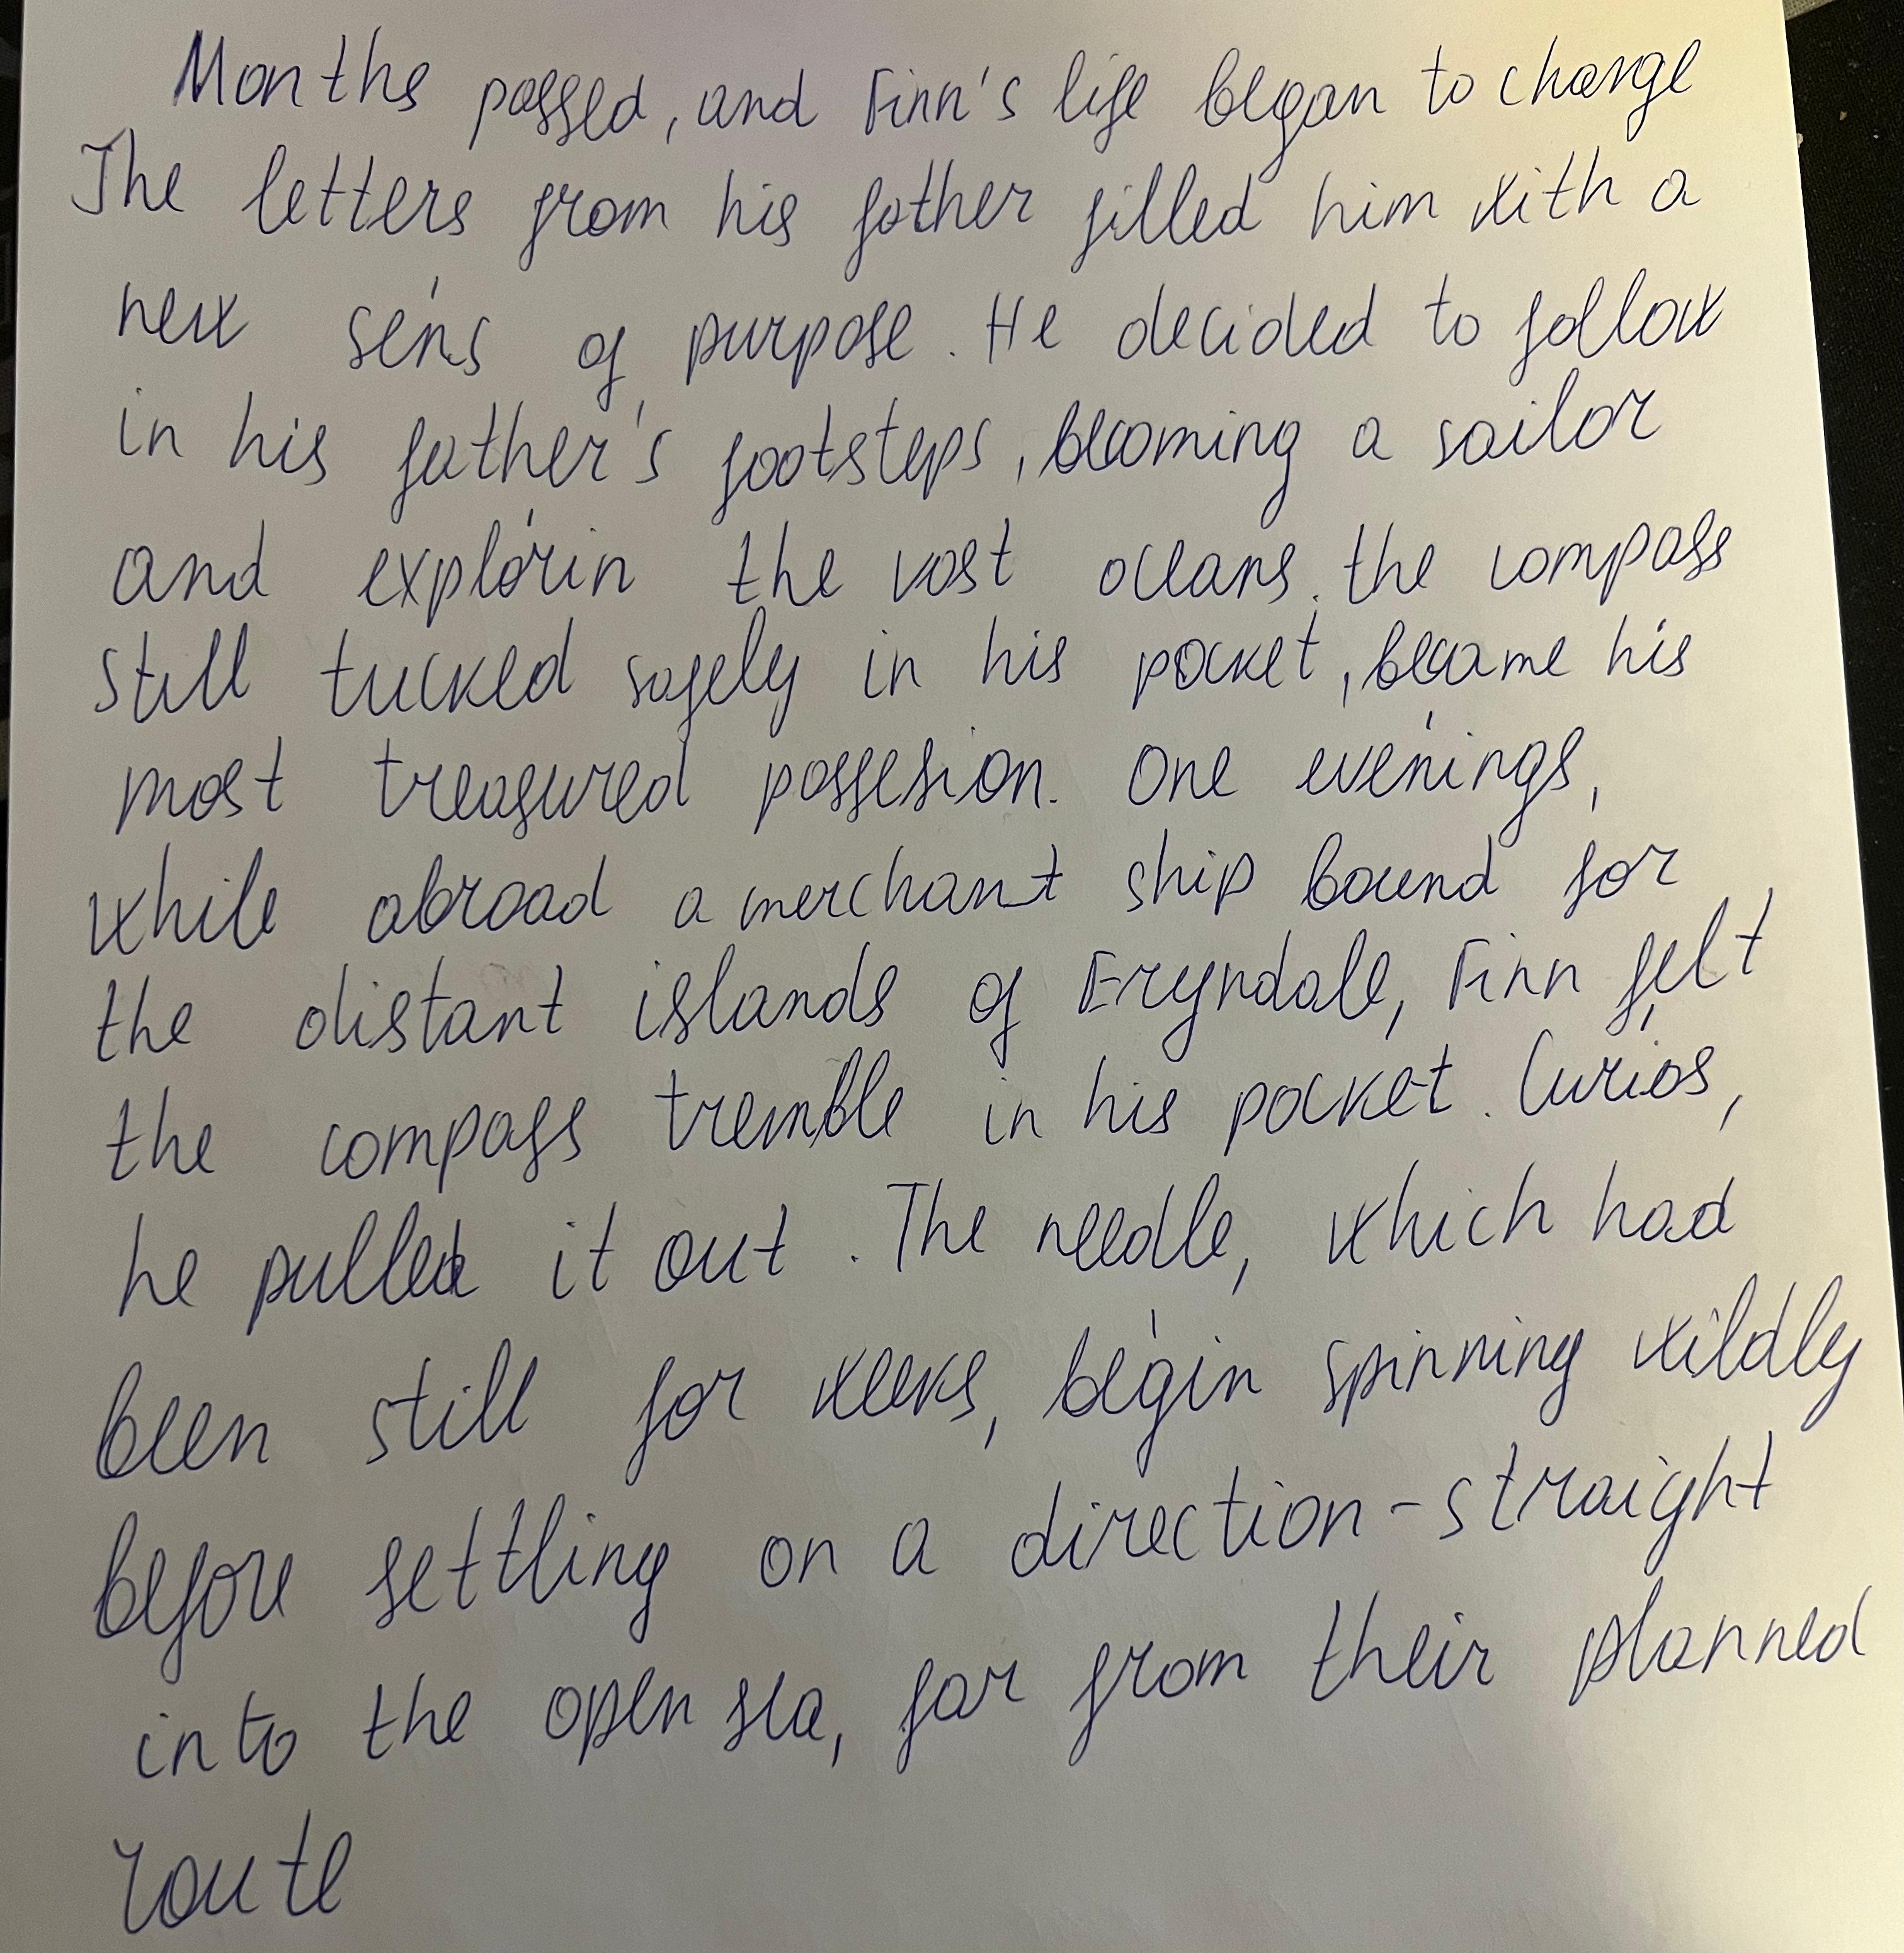 Months passed, and Finn's life began to change
The letters from his father filled him with a
new sens of purpose. He decided to follow
in his father's footsteps, becoming a sailor
and explorin the vast oceans. the compass
still tucked safely in his pocket, became his
most treasured possesion. One evenings,
while abroad a merchant ship bound for
the distant islands of Eryndale, Finn felt
the compass tremble in his pocket. Curios,
he pulled it out. The needle, which had
been still for weeks, begin spinning wildly
before settling on a direction-straight
into the open sea, far from their planned
route